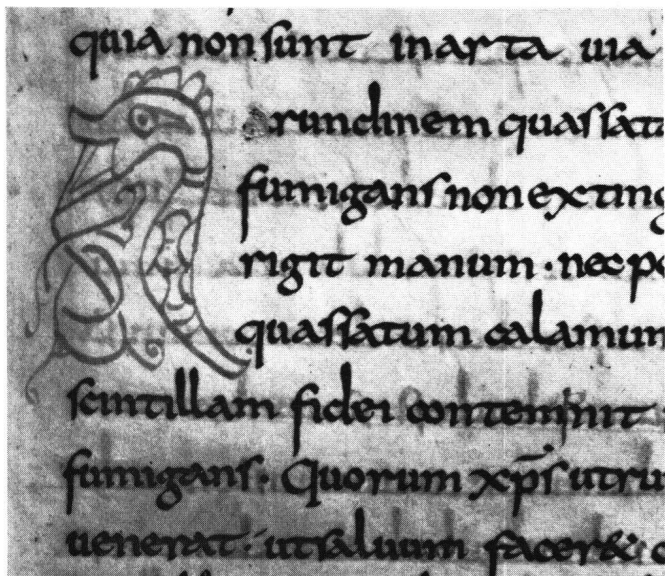 quia non sunt in arta uia
Arundinem quassat
fumigans non exting
rigit manum · nec po
quassatum calamum
scintillam fidei contemnit
fumigans · Quorum xp̄s utru
uenerat · ut saluum facer& c